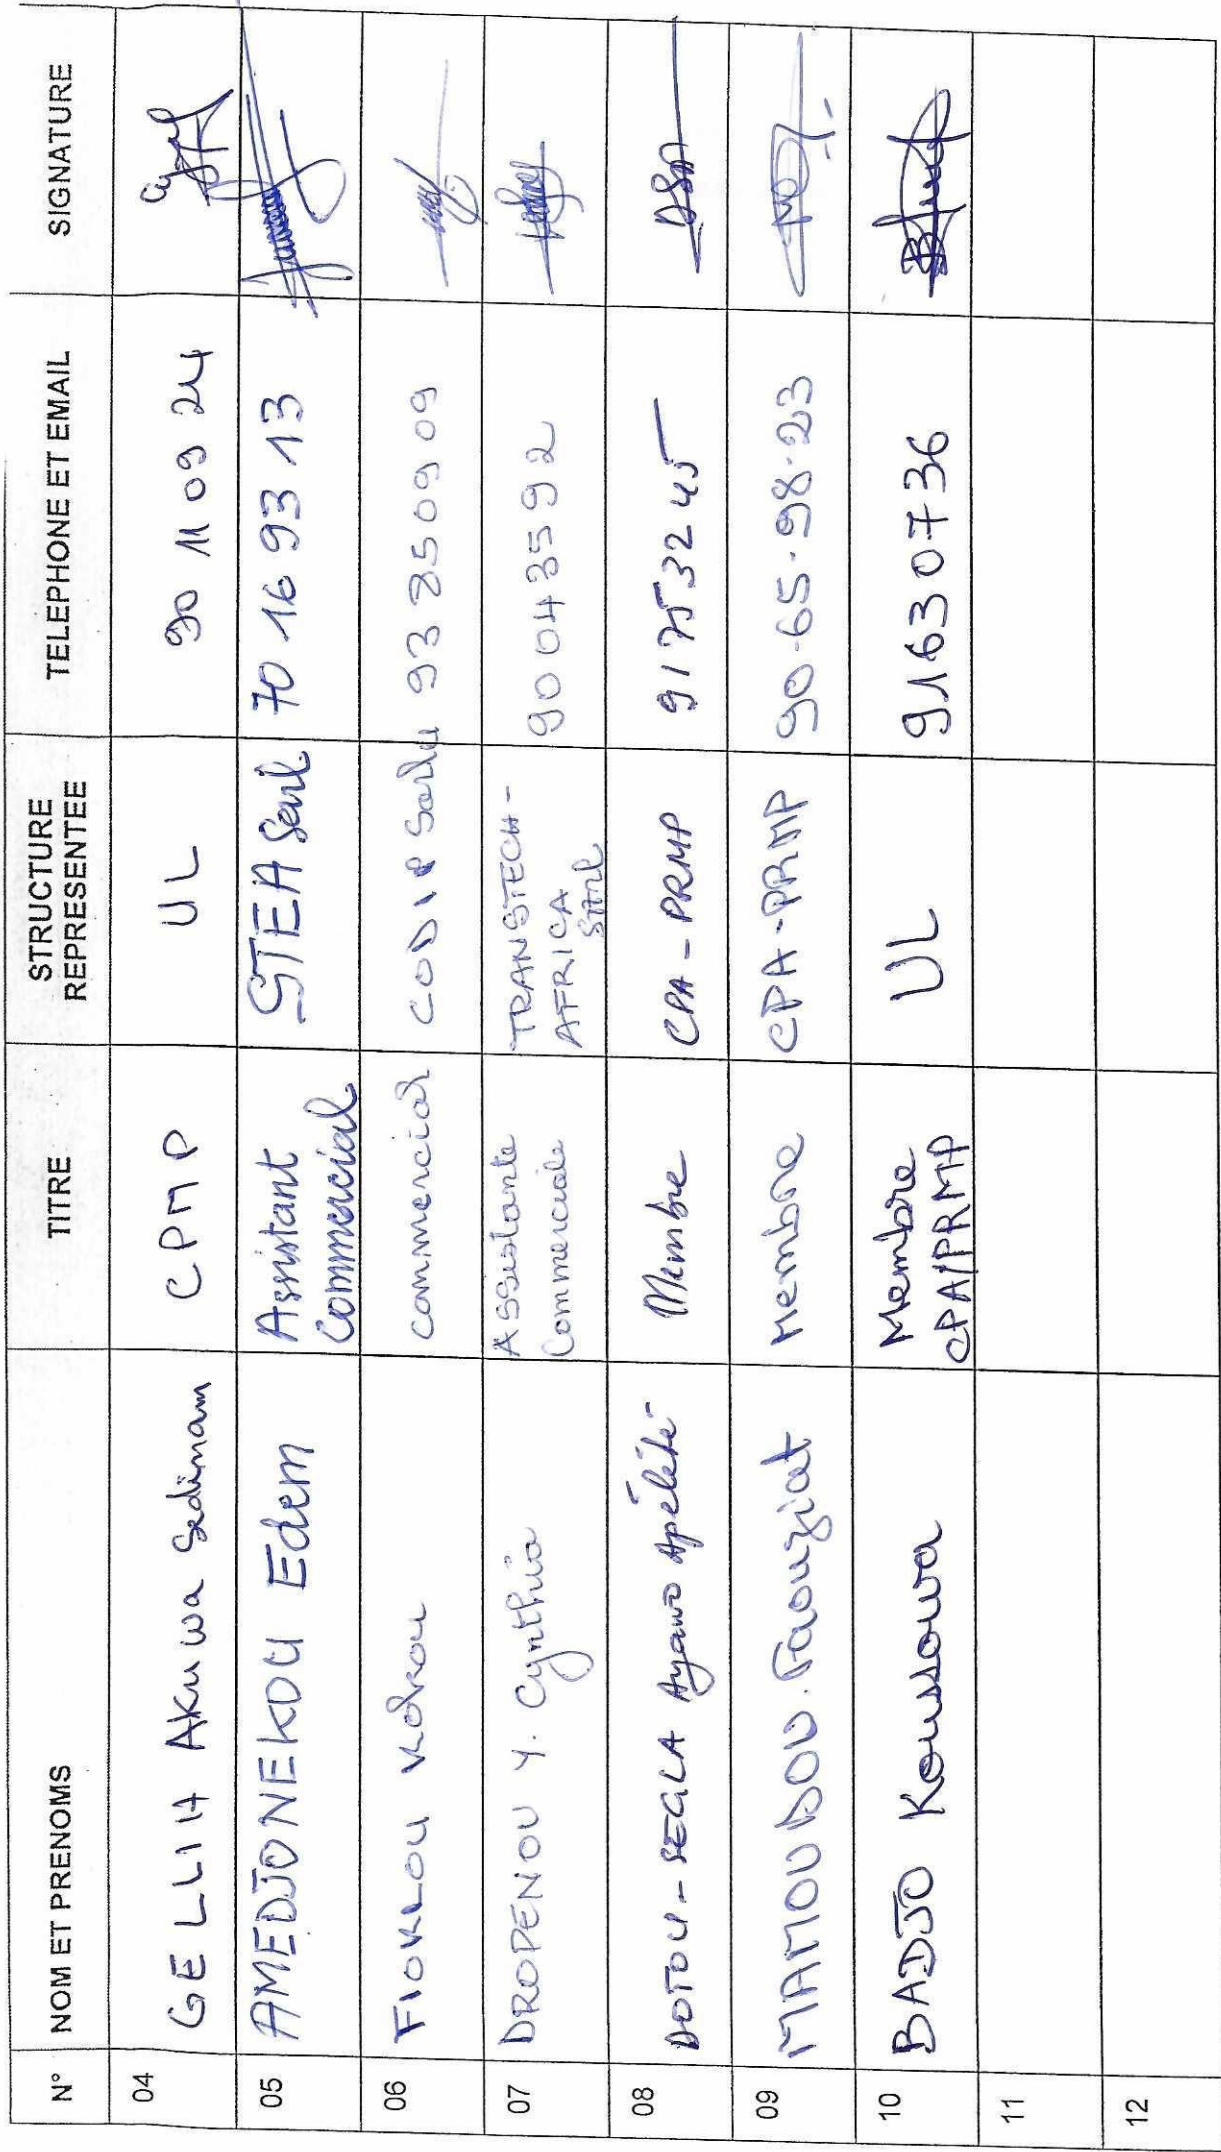 N° NOM ET PRENOMS TITRE STRUCTURE REPRESENTEE TELEPHONE ET EMAIL SIGNATURE
04 GELLIH Akuwa Sedinam CPMP UL 90 11 09 24
05 AMEDJONEKOU Edem Assistant Commercial STEA Sarl 70 16 93 13
06 FIOKLOU Kokou commercial CODIP Sarlu 93 85 09 09
07 DROPENOU Y. Cynthia Assistante Commerciale TRANSTECH-AFRICA SARL 90 04 35 92
08 DOTOU-SEGLA Ayawo Apélété Membre CPA-PRMP 91 75 32 45
09 MAMOUDOU Faouziat Membre CPA-PRMP 90-65-98-23
10 BADJO Koussowa Membre CPA/PRMP UL 91630736
11
12